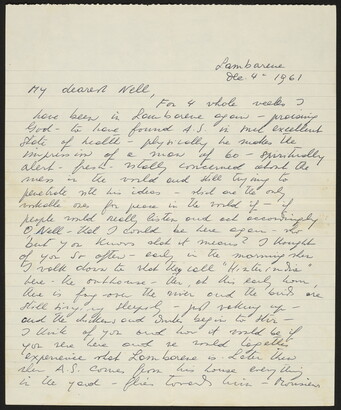 Lambarene
Dec 4th 1961
My dearest Nell,
For 4 whole weeks I
have been in Lambarene again - praising
God - to have found A.S. in most excellent
state of health - physically he makes the
impression of a man of 60 - spiritually
alert - fresh - vitally concerned about the
mess in the world and still trying to
penetrate with his ideas - which are the only
workable ones for peace in the world if - if
people would really listen and act accordingly
O Nell - that I could be here again - who
but you knows what it means? I thought
of you so often - early in the morning when
I walk down to what they call "Hinterindien"
here - the outhouse - then, at this early hour,
there is fog over the river and the birds are
still sleepy - just waking up -
and the chickens and ducks begin to stir -
I think of you and how it would be if
you were here and we would together
experience what Lambarene is. Later then
when A.S. comes from his house everything
in the yard - flies towards him -